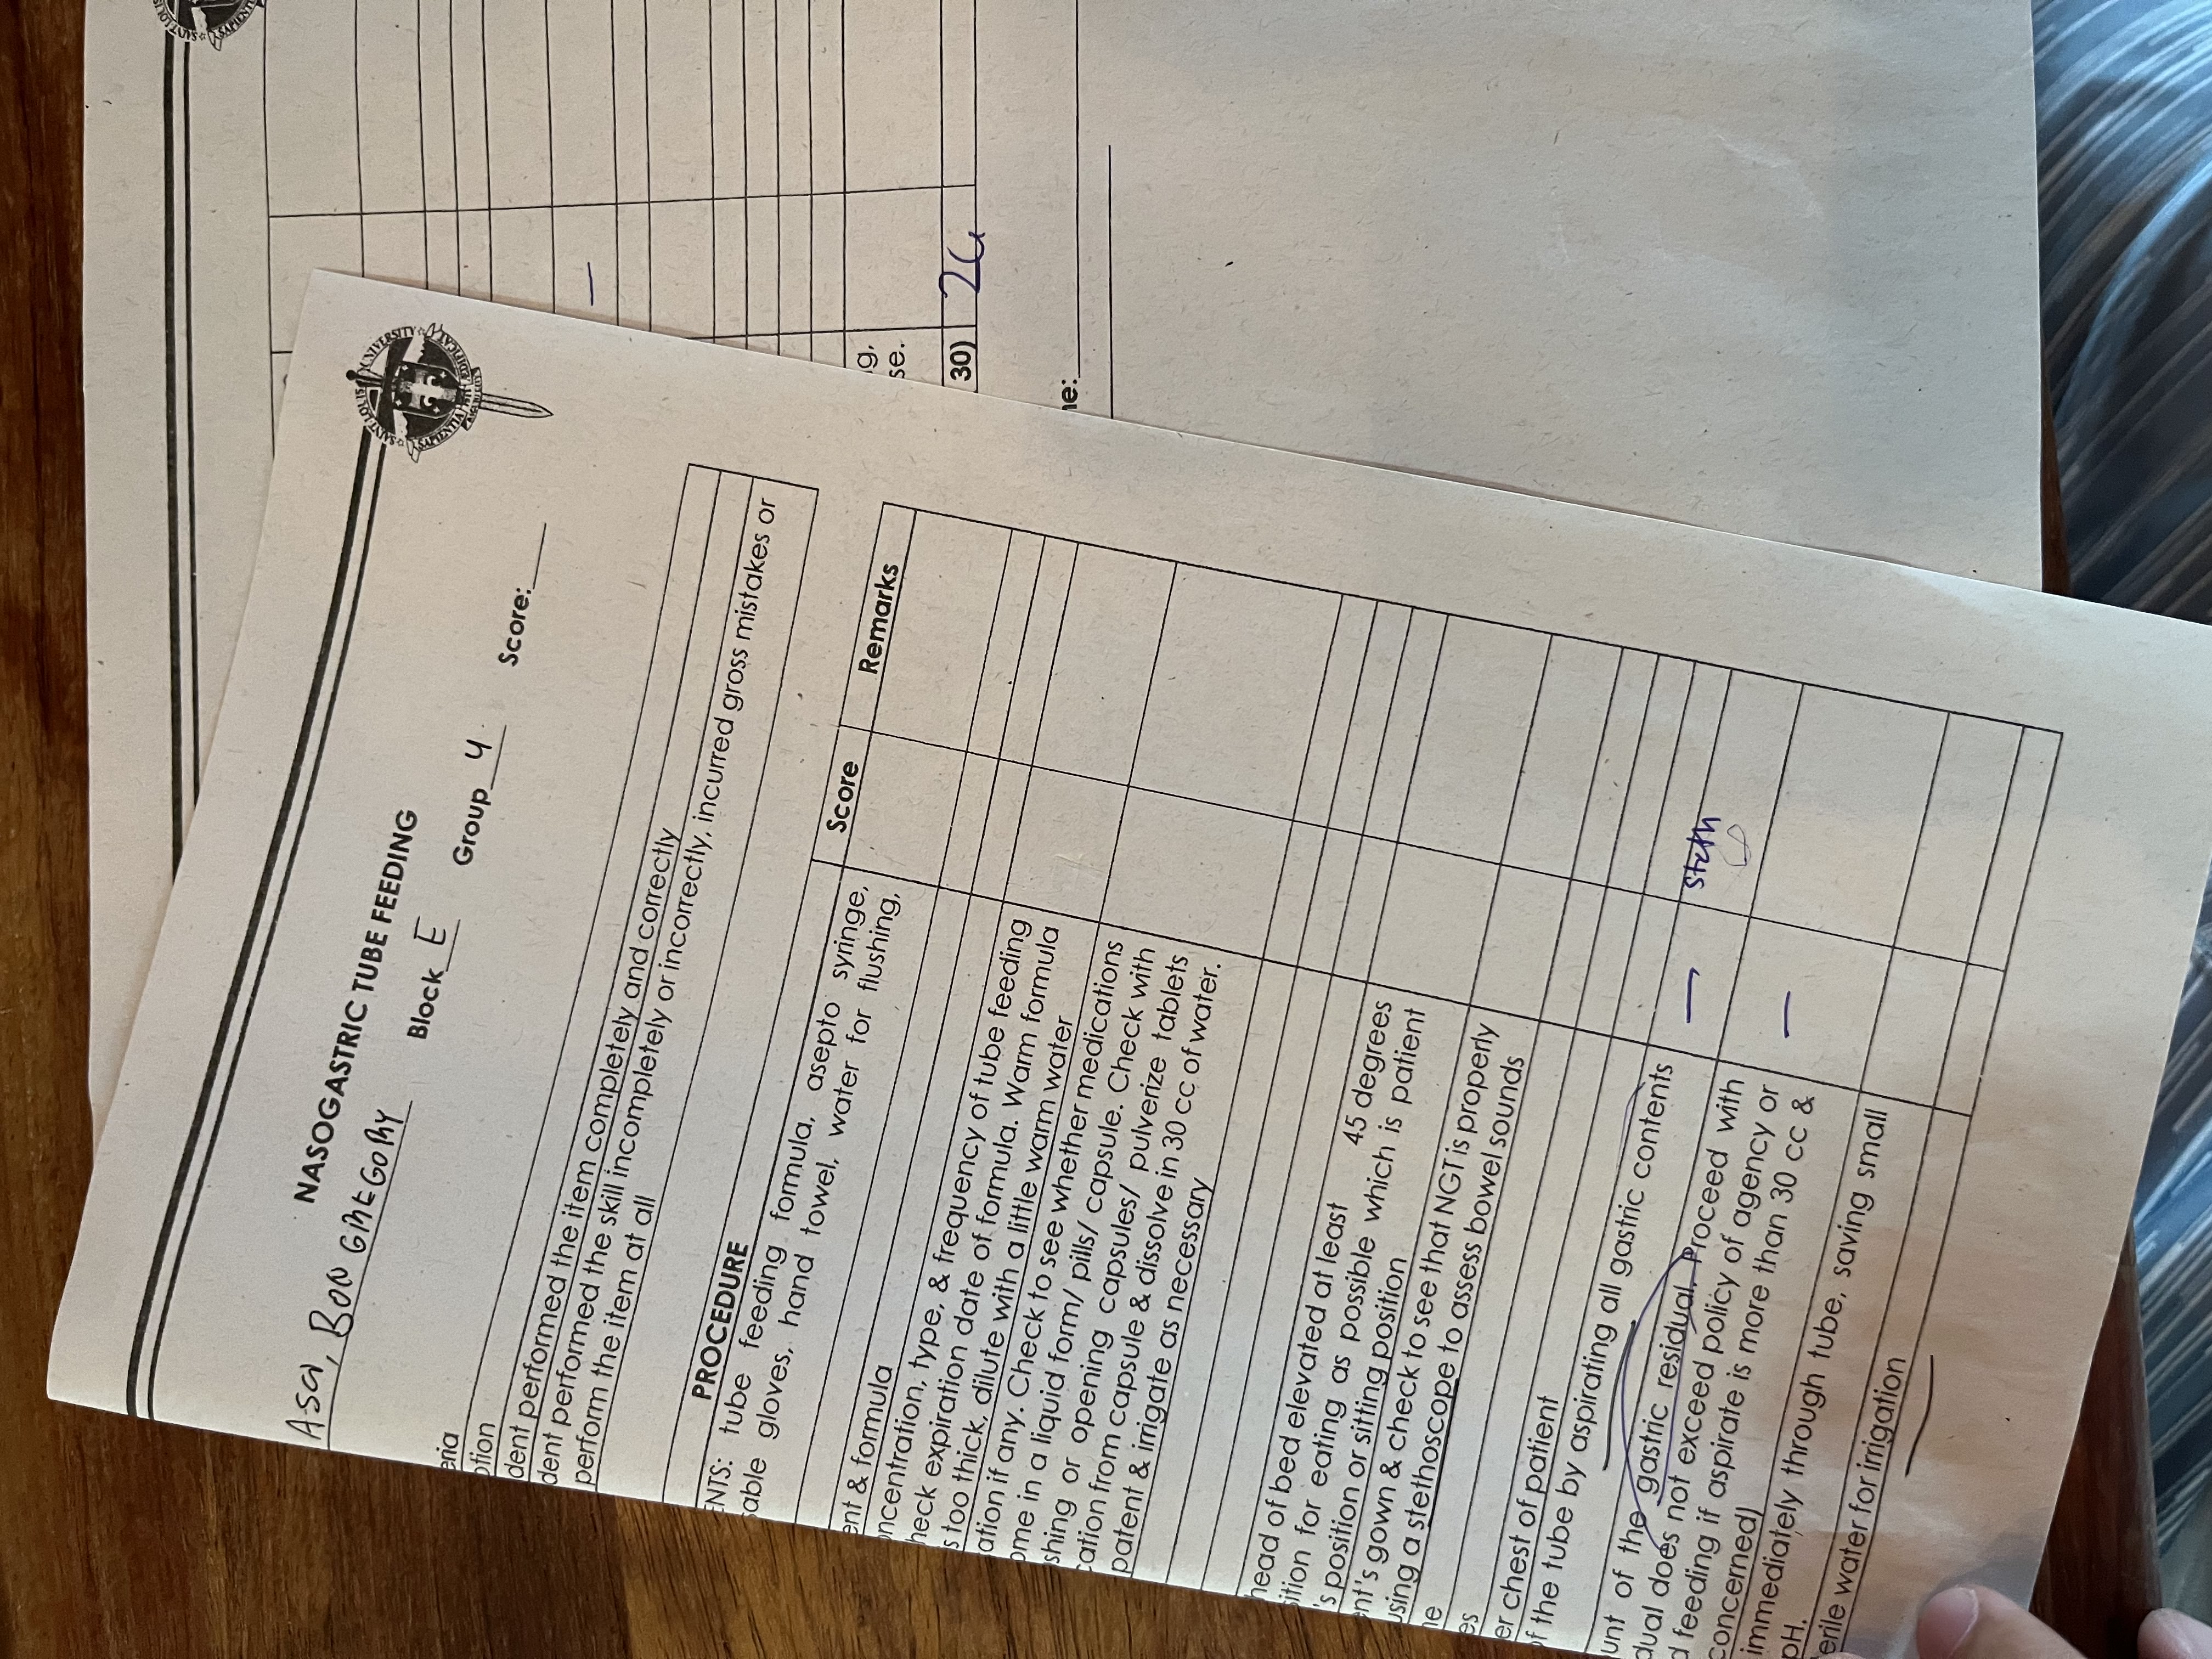 NASOGASTRIC TUBE FEEDING
BON GREGORY Block E Group 4 Score:
SAINT LOUIS UNIVERSITY
SAPIENTIA ÆDIFICAT
eria
ption
dent performed the item completely and correctly
dent performed the skill incompletely or incorrectly, incurred gross mistakes or
perform the item at all
PROCEDURE Score Remarks
ENTS: tube feeding formula, asepto syringe,
sable gloves, hand towel, water for flushing,
ent & formula
oncentration, type, & frequency of tube feeding
heck expiration date of formula. Warm formula
s too thick, dilute with a little warm water
ation if any. Check to see whether medications
ome in a liquid form/ pills/ capsule. Check with
shing or opening capsules/ pulverize tablets
cation from capsule & dissolve in 30 cc of water.
patent & irrigate as necessary
head of bed elevated at least 45 degrees
sition for eating as possible which is patient
's position or sitting position
ent's gown & check to see that NGT is properly
using a stethoscope to assess bowel sounds
ne
es
er chest of patient
of the tube by aspirating all gastric contents
— steth
unt of the gastric residual. Proceed with
dual does not exceed policy of agency or
d feeding if aspirate is more than 30 cc & —
concerned)
immediately through tube, saving small
pH.
terile water for irrigation
—
g,
se.
30)
ne: